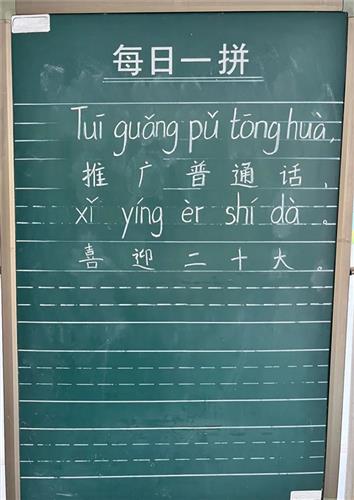 每日一拼
Tuī guǎng pǔ tōng huà,
推广普通话，
xǐ yíng èr shí dà。
喜迎二十大。